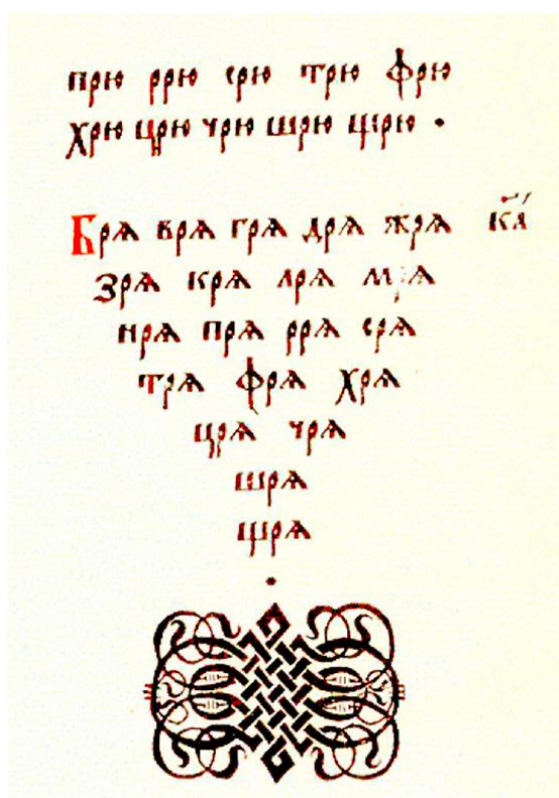 прю ррю срю трю фрю
хрю црю чрю шрю щрю ·
Брѧ врѧ грѧ дрѧ жрѧ
зрѧ крѧ лрѧ мрѧ
нрѧ прѧ ррѧ срѧ
трѧ фрѧ хрѧ
црѧ чрѧ
шрѧ
щрѧ
·